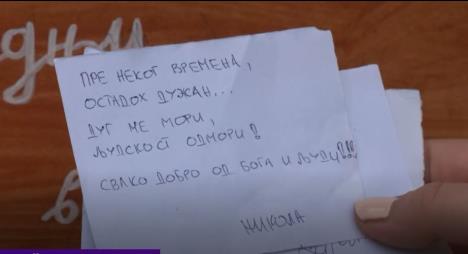 ПРЕ НЕКОГ ВРЕМЕНА,
ОСТАДОХ ДУЖАН...
ДУГ МЕ МОРИ,
ЉУДСКОСТ ОДМОРИ!
СВАКО ДОБРО ОД БОГА И ЉУДИ!!!
НИКОЛА